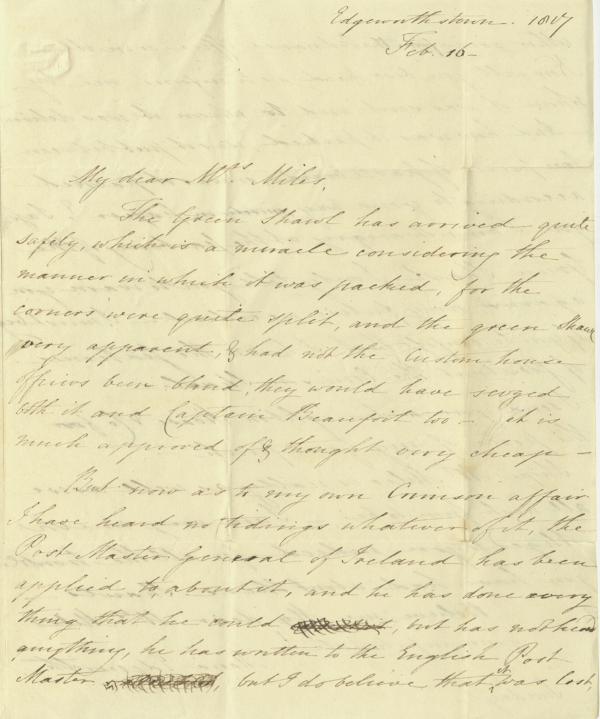 Edgeworthstown. 1817
Feb. 16-
My dear Mrs Miles,
The Green Shawl has arrived quite
safely, which is a miracle considering the
manner in which it was packed, for the
corners were quite split, and the green Shawl
very apparent, & had not the Custom house
officers been blind, they would have seized
both it and Captain Beaufort too - it is
much approved of & thought very cheap -
But now as to my own Crimson affair
I have heard no tidings whatever of it, the
Post Master General of Ireland has been
applied to, about it, and he has done every
thing that he could , but has not heard
anything, he has written to the English Post
Master , but I do believe that it was lost,